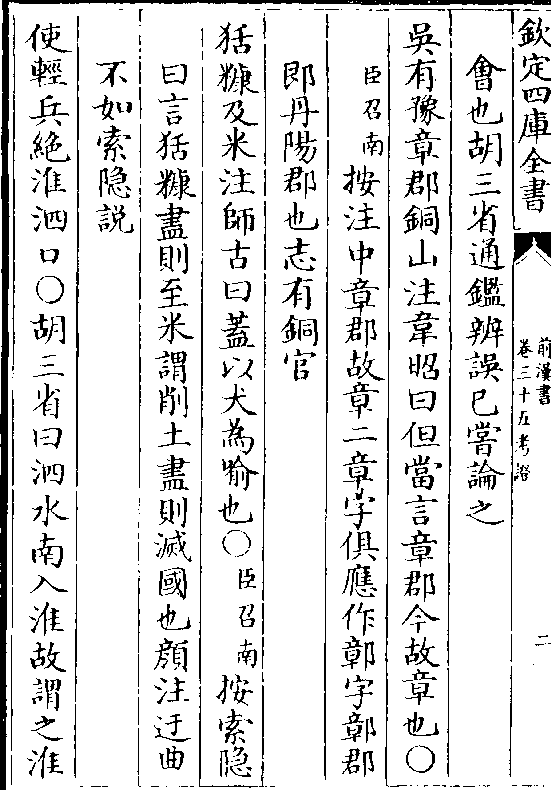 欽定四庫全書
前漢書
卷三十五考證
二
會也胡三省通鑑辨誤已嘗論之
吳有豫章郡銅山注韋昭曰但當言章郡今故章也〇
臣召南按注中章郡故章二章字俱應作鄣字鄣郡
即丹陽郡也志有銅官
狧糠及米注師古曰蓋以犬為喻也〇臣召南按索隐
曰言狧糠盡則至米謂削土盡則滅國也顔注迂曲
不如索隐說
使輕兵絶淮泗口〇胡三省曰泗水南入淮故謂之淮